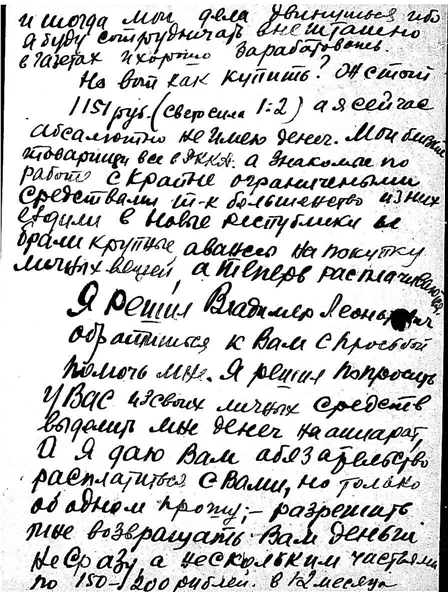 и тогда мои дела двинуться ибо
я буду сотрудничать внештатно
в газетах и хорошо заработовать.
Но вот как купить? Он стоит
1151 руб. (светосила 1:2) а я сейчас
абсалютно не имею денег. Мои бывшие
товарищи все в РККА. а знакомые по
работе с крайне ограничеными
средствами т-к большенство из них
ездили в новые республики и
брали крупные авансы на покупку
личных вещей, а теперь расплачиваются.
Я решил Владимир Леонтьевич
обратиться к Вам с просьбой
помочь мне. Я решил попросить
у Вас из своих личных средств
выделить мне денег на аппарат,
а я даю Вам обязательство
расплатиться с Вами, но только
об одном прошу; - разрешить
мне возвращать Вам деньги
не сразу а нескольким частями
по 150-200 рублей. в 1-2 месяца